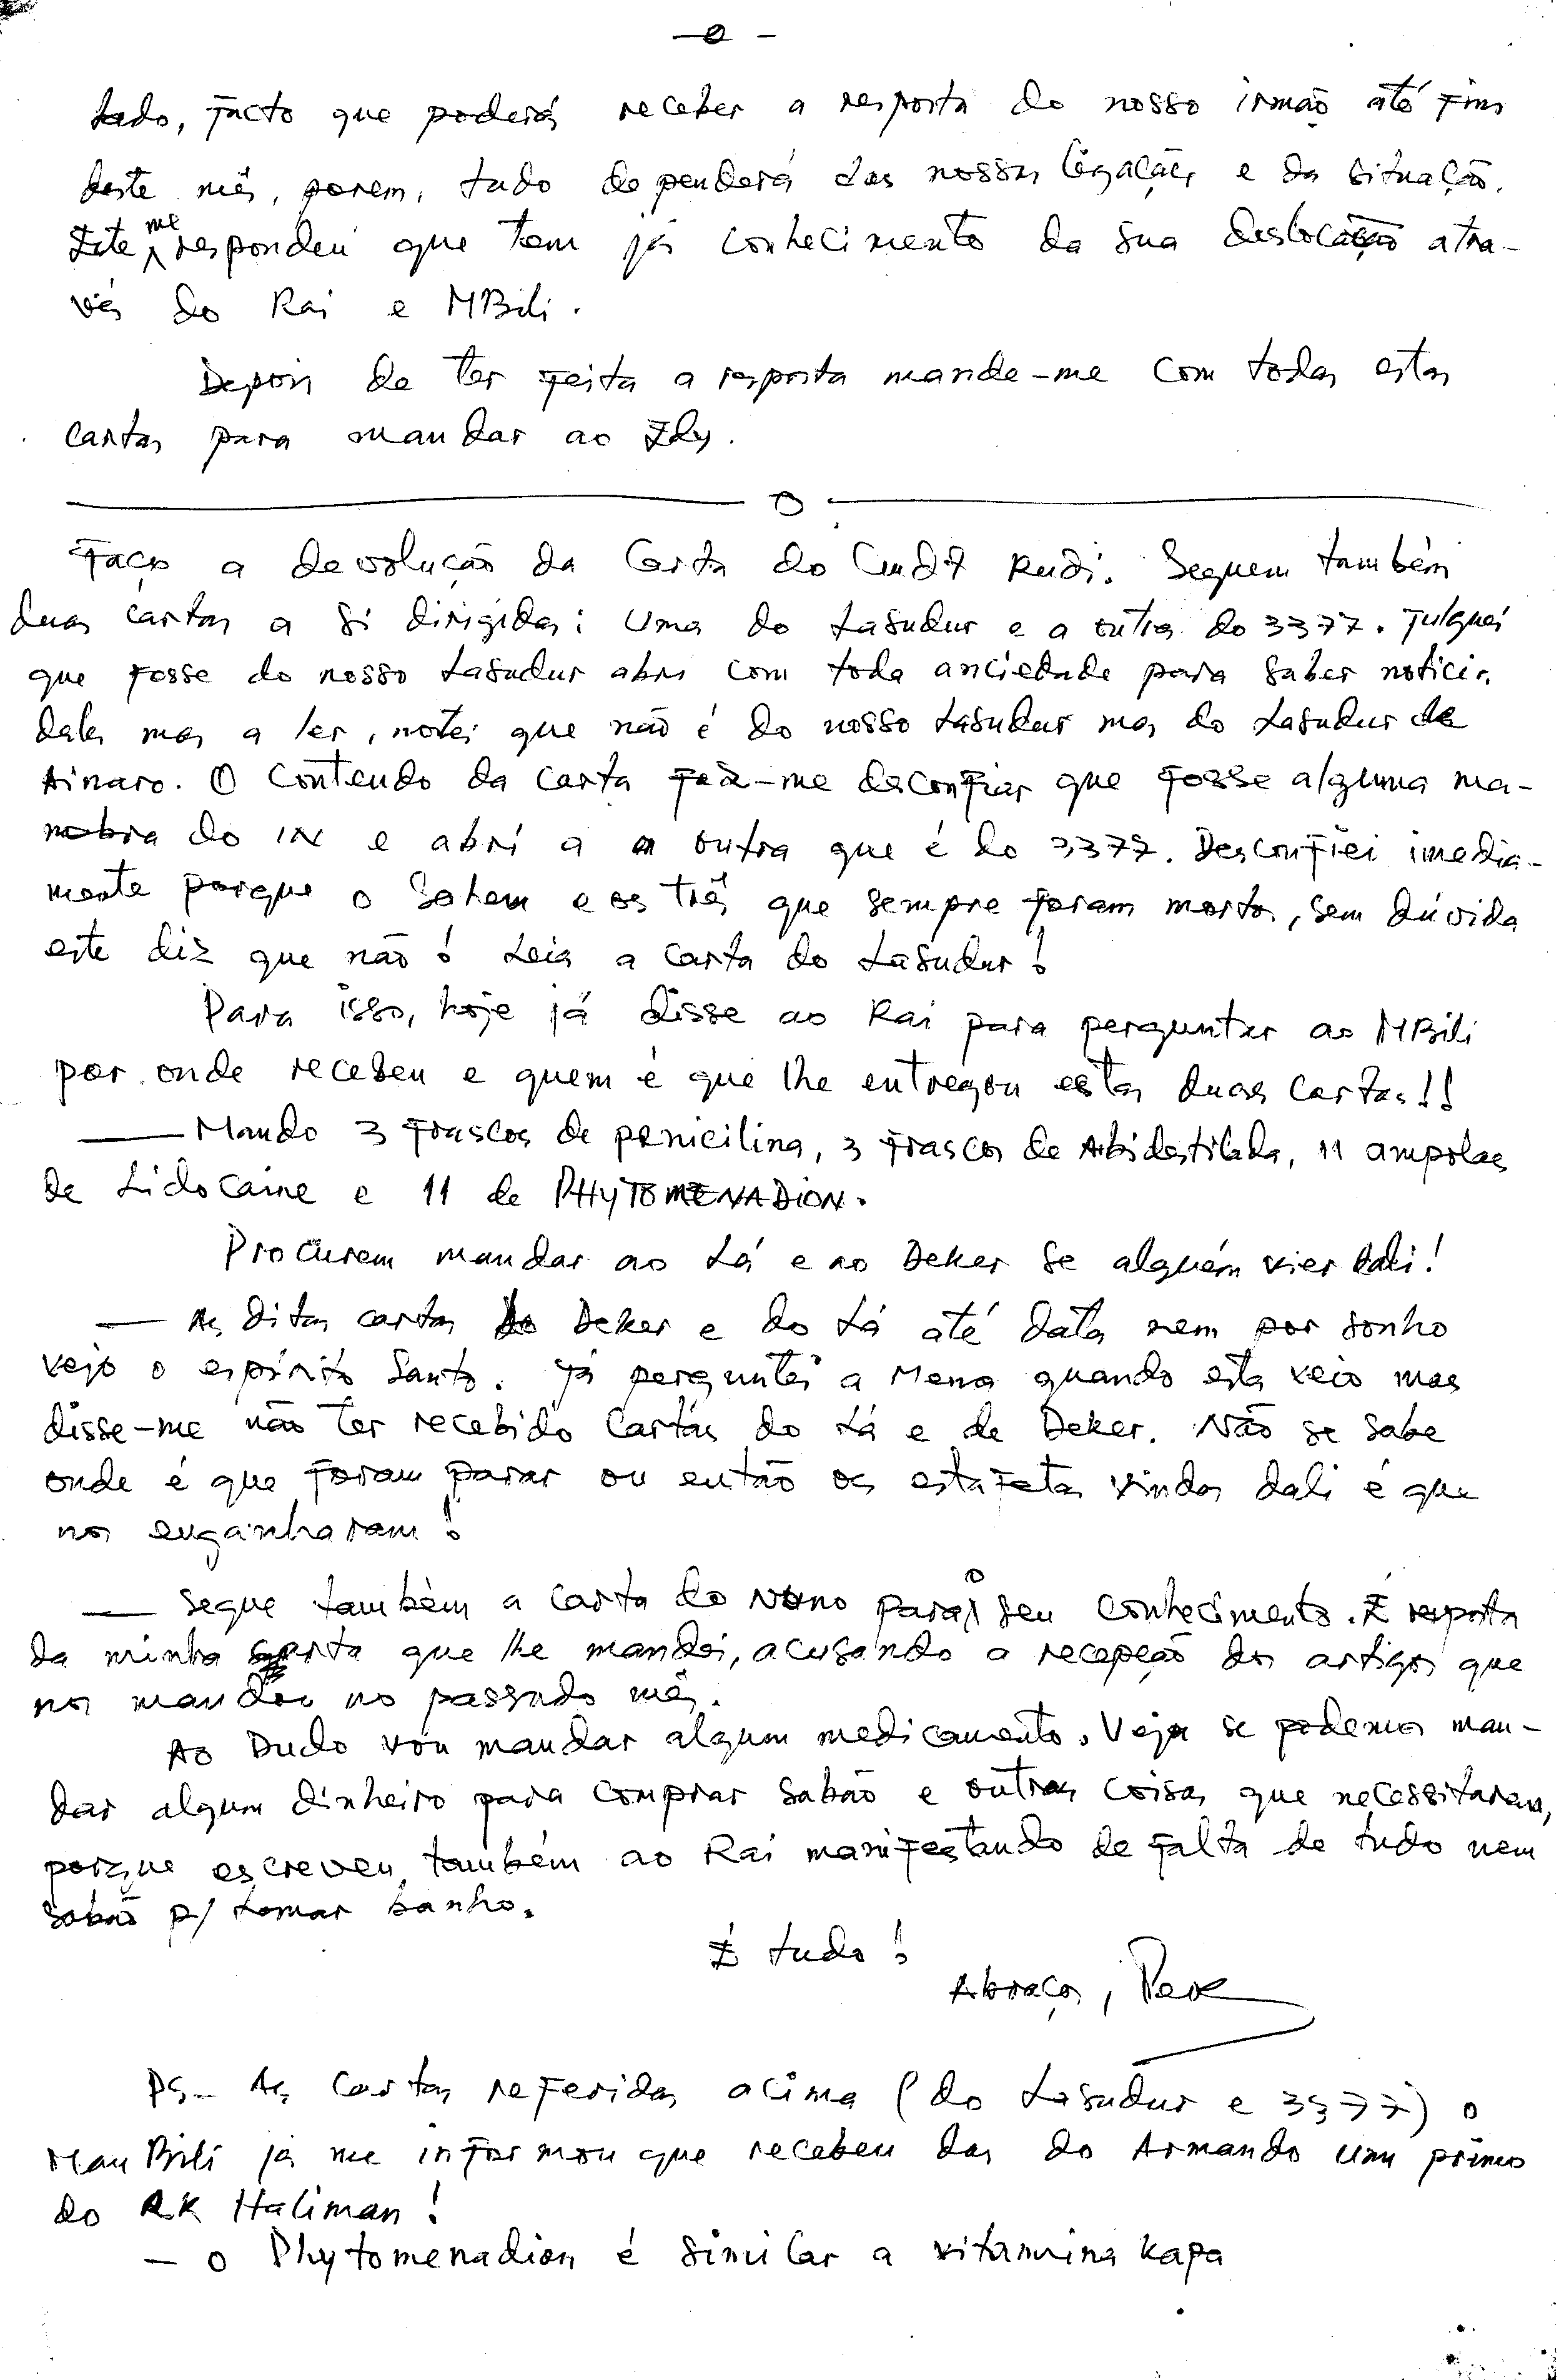 - 2 -
tado, facto que poderá receber a resposta do nosso irmão até fins
deste mês, porem, tudo dependerá das nossas ligações e da situação.
Este me respondeu que tem já conhecimento da sua deslocação atra-
vés do Rai e MBili.
Depois de ter feita a resposta mande-me com todas estas
cartas para mandar ao
Faço a devolução da Carta do Cmdt Rudi. Seguem também
duas cartas a si dirigidas: Uma do Lasudur e a outra do 3377. Julguei
que fosse do nosso Lasudur abri com toda anciedade para saber noticias
dales mas a ler, notei que não é do nosso Lasudur mas do Lasudur de
Ainaro. O Conteudo da Carta fez-me desconfiar que fosse alguma ma-
nobra do IN e abri a outra que é do 3377. Desconfiei imedia-
mente porque o Sahem e os três que sempre foram mortos, sem dúvida
este diz que não! Leia a Carta do Lasudur!
Para isso, hoje já disse ao Rai para perguntar ao MBili
por onde recebeu e quem é que lhe entregou estas duas Cartas!!
— Mando 3 frascos de penicilina, 3 frascos de A.bidestilada, 11 ampolas
de Lidocaine e 11 de PHYTOMENADION.
Procurem mandar ao Lá e ao Deker se alguém vier dali!
— As ditas cartas do Deker e do Lá até data nem por sonho
vejo o espírito Santo. Já perguntei a Mena quando esta veio mas
disse-me não ter recebido Cartas do Lá e de Deker. Não se sabe
onde é que foram parar ou então os estafetas vindos dali é que
nos enganharam!
— Segue também a Carta do Nono para o seu Conhecimento. É resposta
da minha carta que lhe mandei, acusando a recepção dos artigos que
nos mandou no passado mês.
Ao Dudo vou mandar algum medicamento. Veja se podemos man-
dar algum dinheiro para comprar Sabão e outras Coisas que necessitarem,
porque escreveu também ao Rai manifestando de falta de tudo nem
Sabão p/ tomar banho.
É tudo!
Abraços,
PS - As Cartas referidas acima (do Lasudur e 3377) o
Mau Bili já me informou que recebeu das do Armando um primo
do RK Haliman!
— O Phytomenadion é similar a vitamina kapa